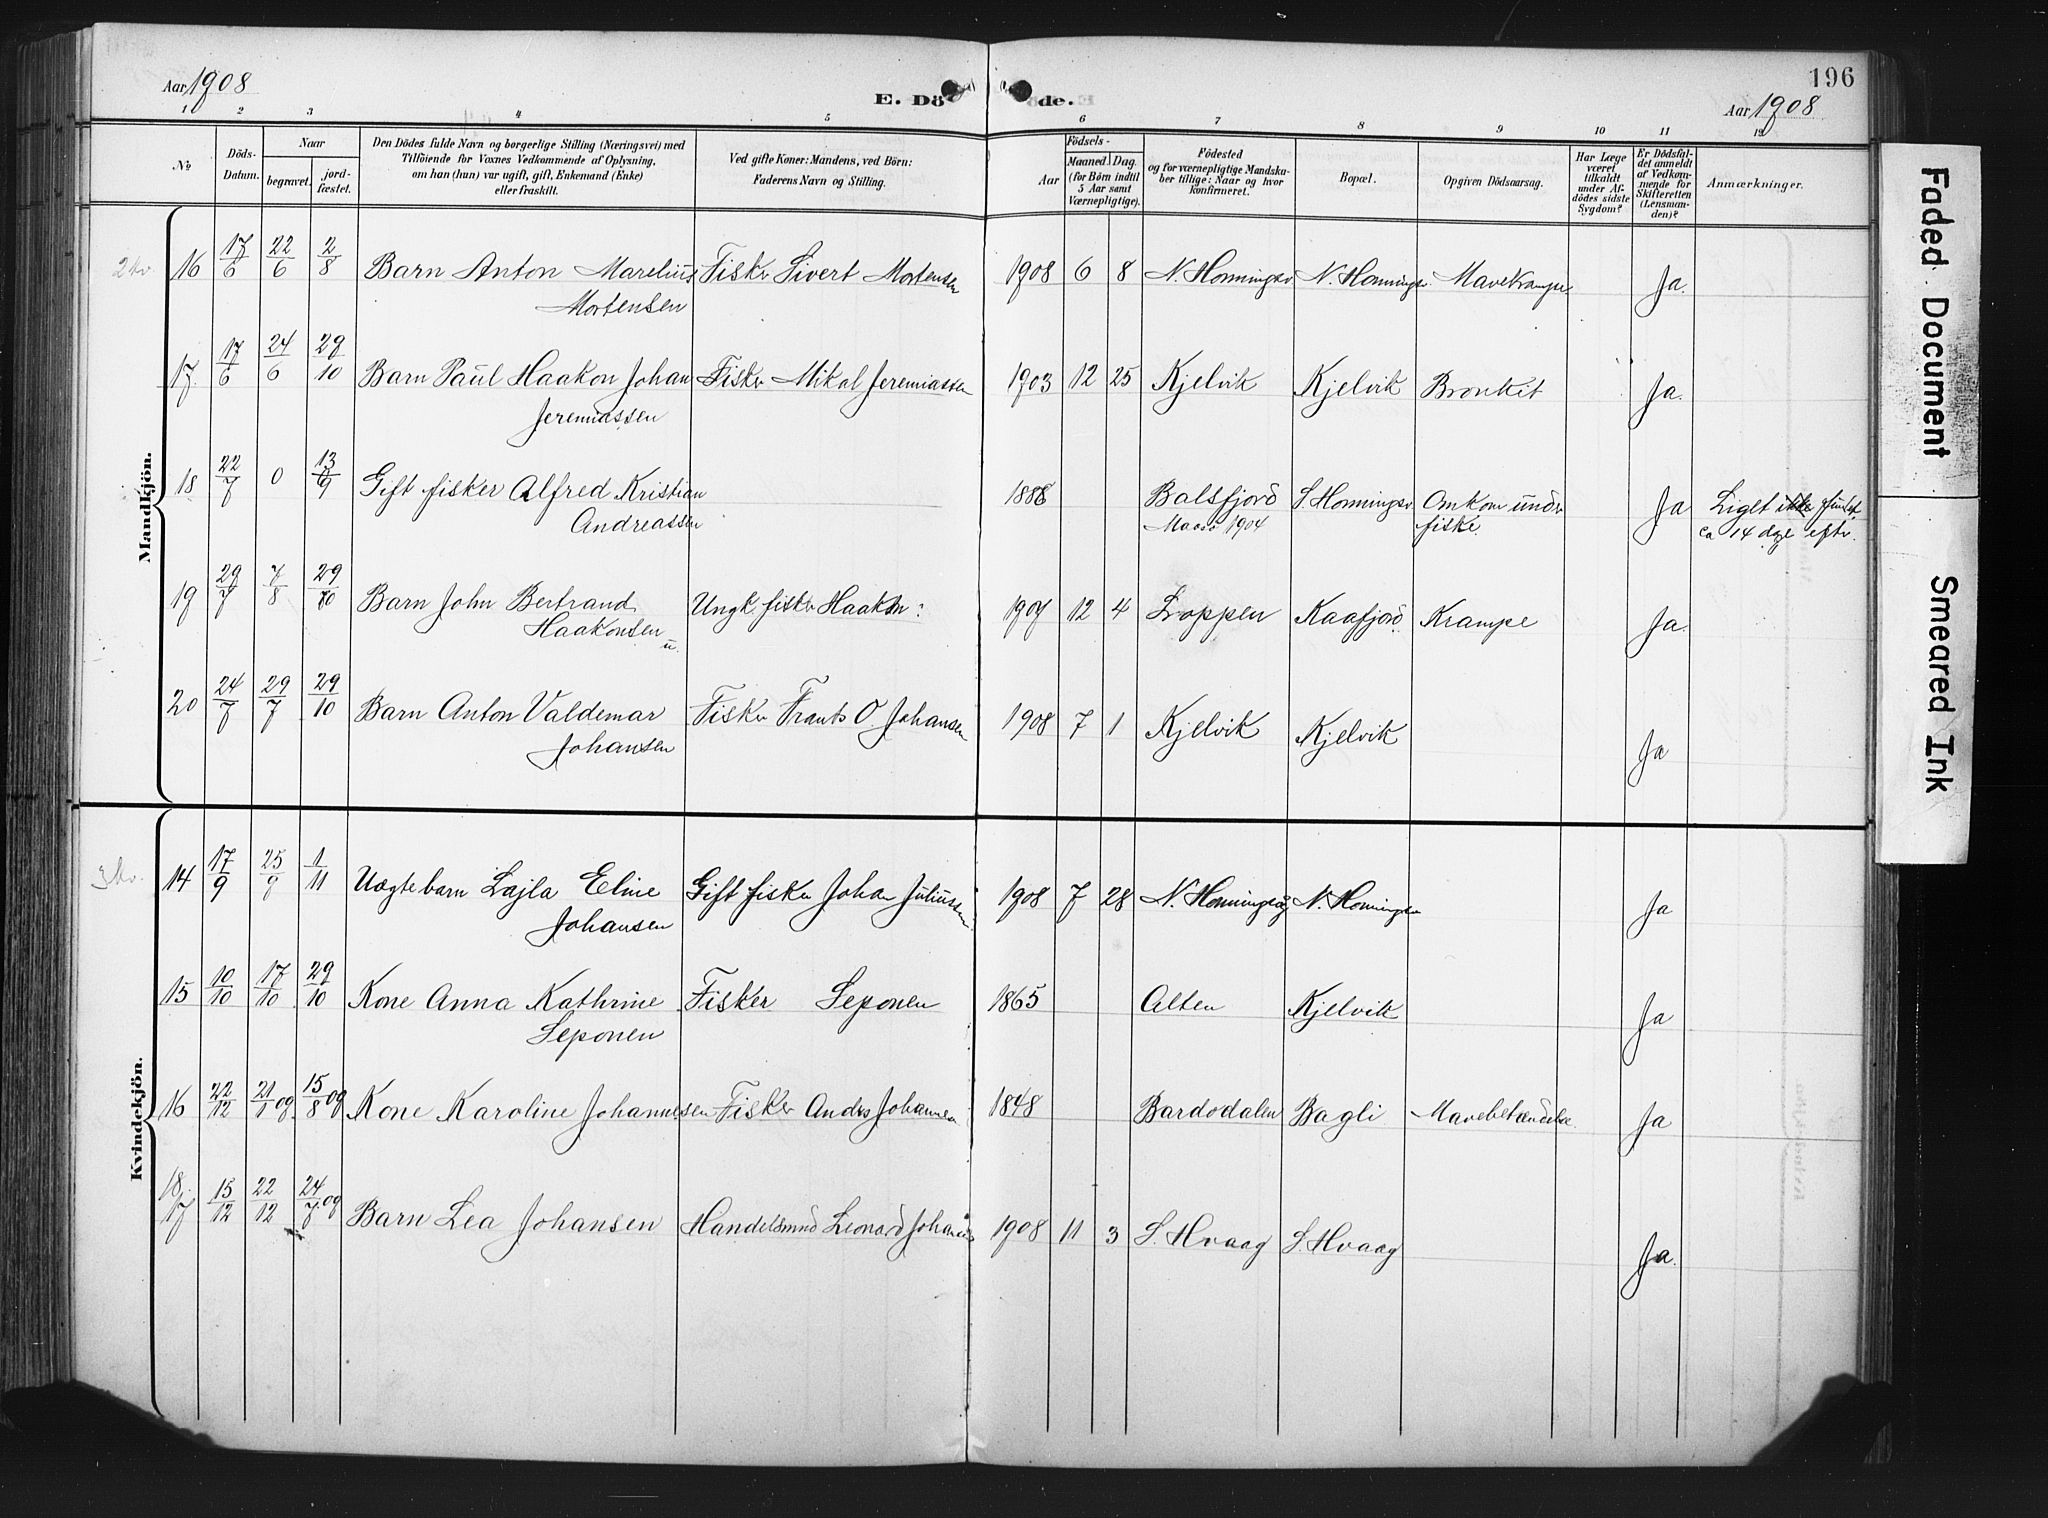 Aar 1908
E. Dö de.
196
Aar 1908
1 2 3 4 5 6 7 8 9 10 11 12
No Döds-Datum. Naar begravet. jord-fæstet. Den Dödes fulde Navn og borgerlige Stilling (Næringsvei) med Tilföiende for Voxnes Vedkommende af Oplysning, om han (hun) var ugift, gift, Enkemand (Enke) eller fraskilt. Ved gifte Koner: Mandens, ved Börn: Faderens Navn og Stilling. Födsels- Aar Maaned. Dag. (for Börn indtil 5 Aar samt Værnepligtige). Födested og for værnepligtige Mandska-ber tillige: Naar og hvor konfirmeret. Bopæl. Opgiven Dödsaarsag. Har Læge været tilkaldt under Af-dödes sidste Sygdom? Er Dödsfal-det anmeldt af Vedkom-mende for Skifteretten (Lensman-den)? Anmærkninger.
Mandkjön.
2 kv. 16 17/6 22/6 2/8 Barn Anton Marelius Mortensen Fisker Sivert Mortensen 1908 6 8 N. Honningsv. N. Honningsv. Mavekrampe. Ja.
17. 17/6 24/6 29/10 Barn Paul Haakon Johan Jeremiassen Fisker Mikal Jeremiassen 1903 12 25 Kjelvik Kjelvik Bronkit Ja.
18 22/7 0 13/9 Gift fisker Alfred Kristian Andreassen 1886 Balsfjord Maasö 1904 S. Honningsv. Omkom under fiske. Ja Liget ikke fundet. ca 14 dage eftr.
19 29/7 7/8 29/10 Barn John Bertrand Haakonsen u. Ungk. fisker Haakon: 1907 12 4 Loppen Kaafjord Krampe Ja.
20 24/7 29/7 29/10 Barn Anton Valdemar Johansen Fisker Frants O. Johansen 1908 7 1 Kjelvik Kjelvik Ja
Kvindekjön.
3 kv. 14 17/9 25/9 1/11 Uægte barn Lajla Eline Johansen Gift fisker Johan Juliussen 1908 7 28 N. Honningsvåg N. Honningsv Ja
15 10/10 17/10 29/10 Kone Anna Kathrine Seponen Fisker Seponen 1865 Alten Kjelvik Ja
16 22/12 21/1 09. 15/8 09 Kone Karoline Johannesen Fisker Andrs Johannesen 1848 Bardodalen Bagli Mavebetændelse. Ja
18. 17 15/12 22/12 24/7 09 Barn Lea Johansen Handelsmnd Leonard Johansen 1908 11 3 S. Hvaag S. Hvaag Ja.
Faded Document
Smeared Ink